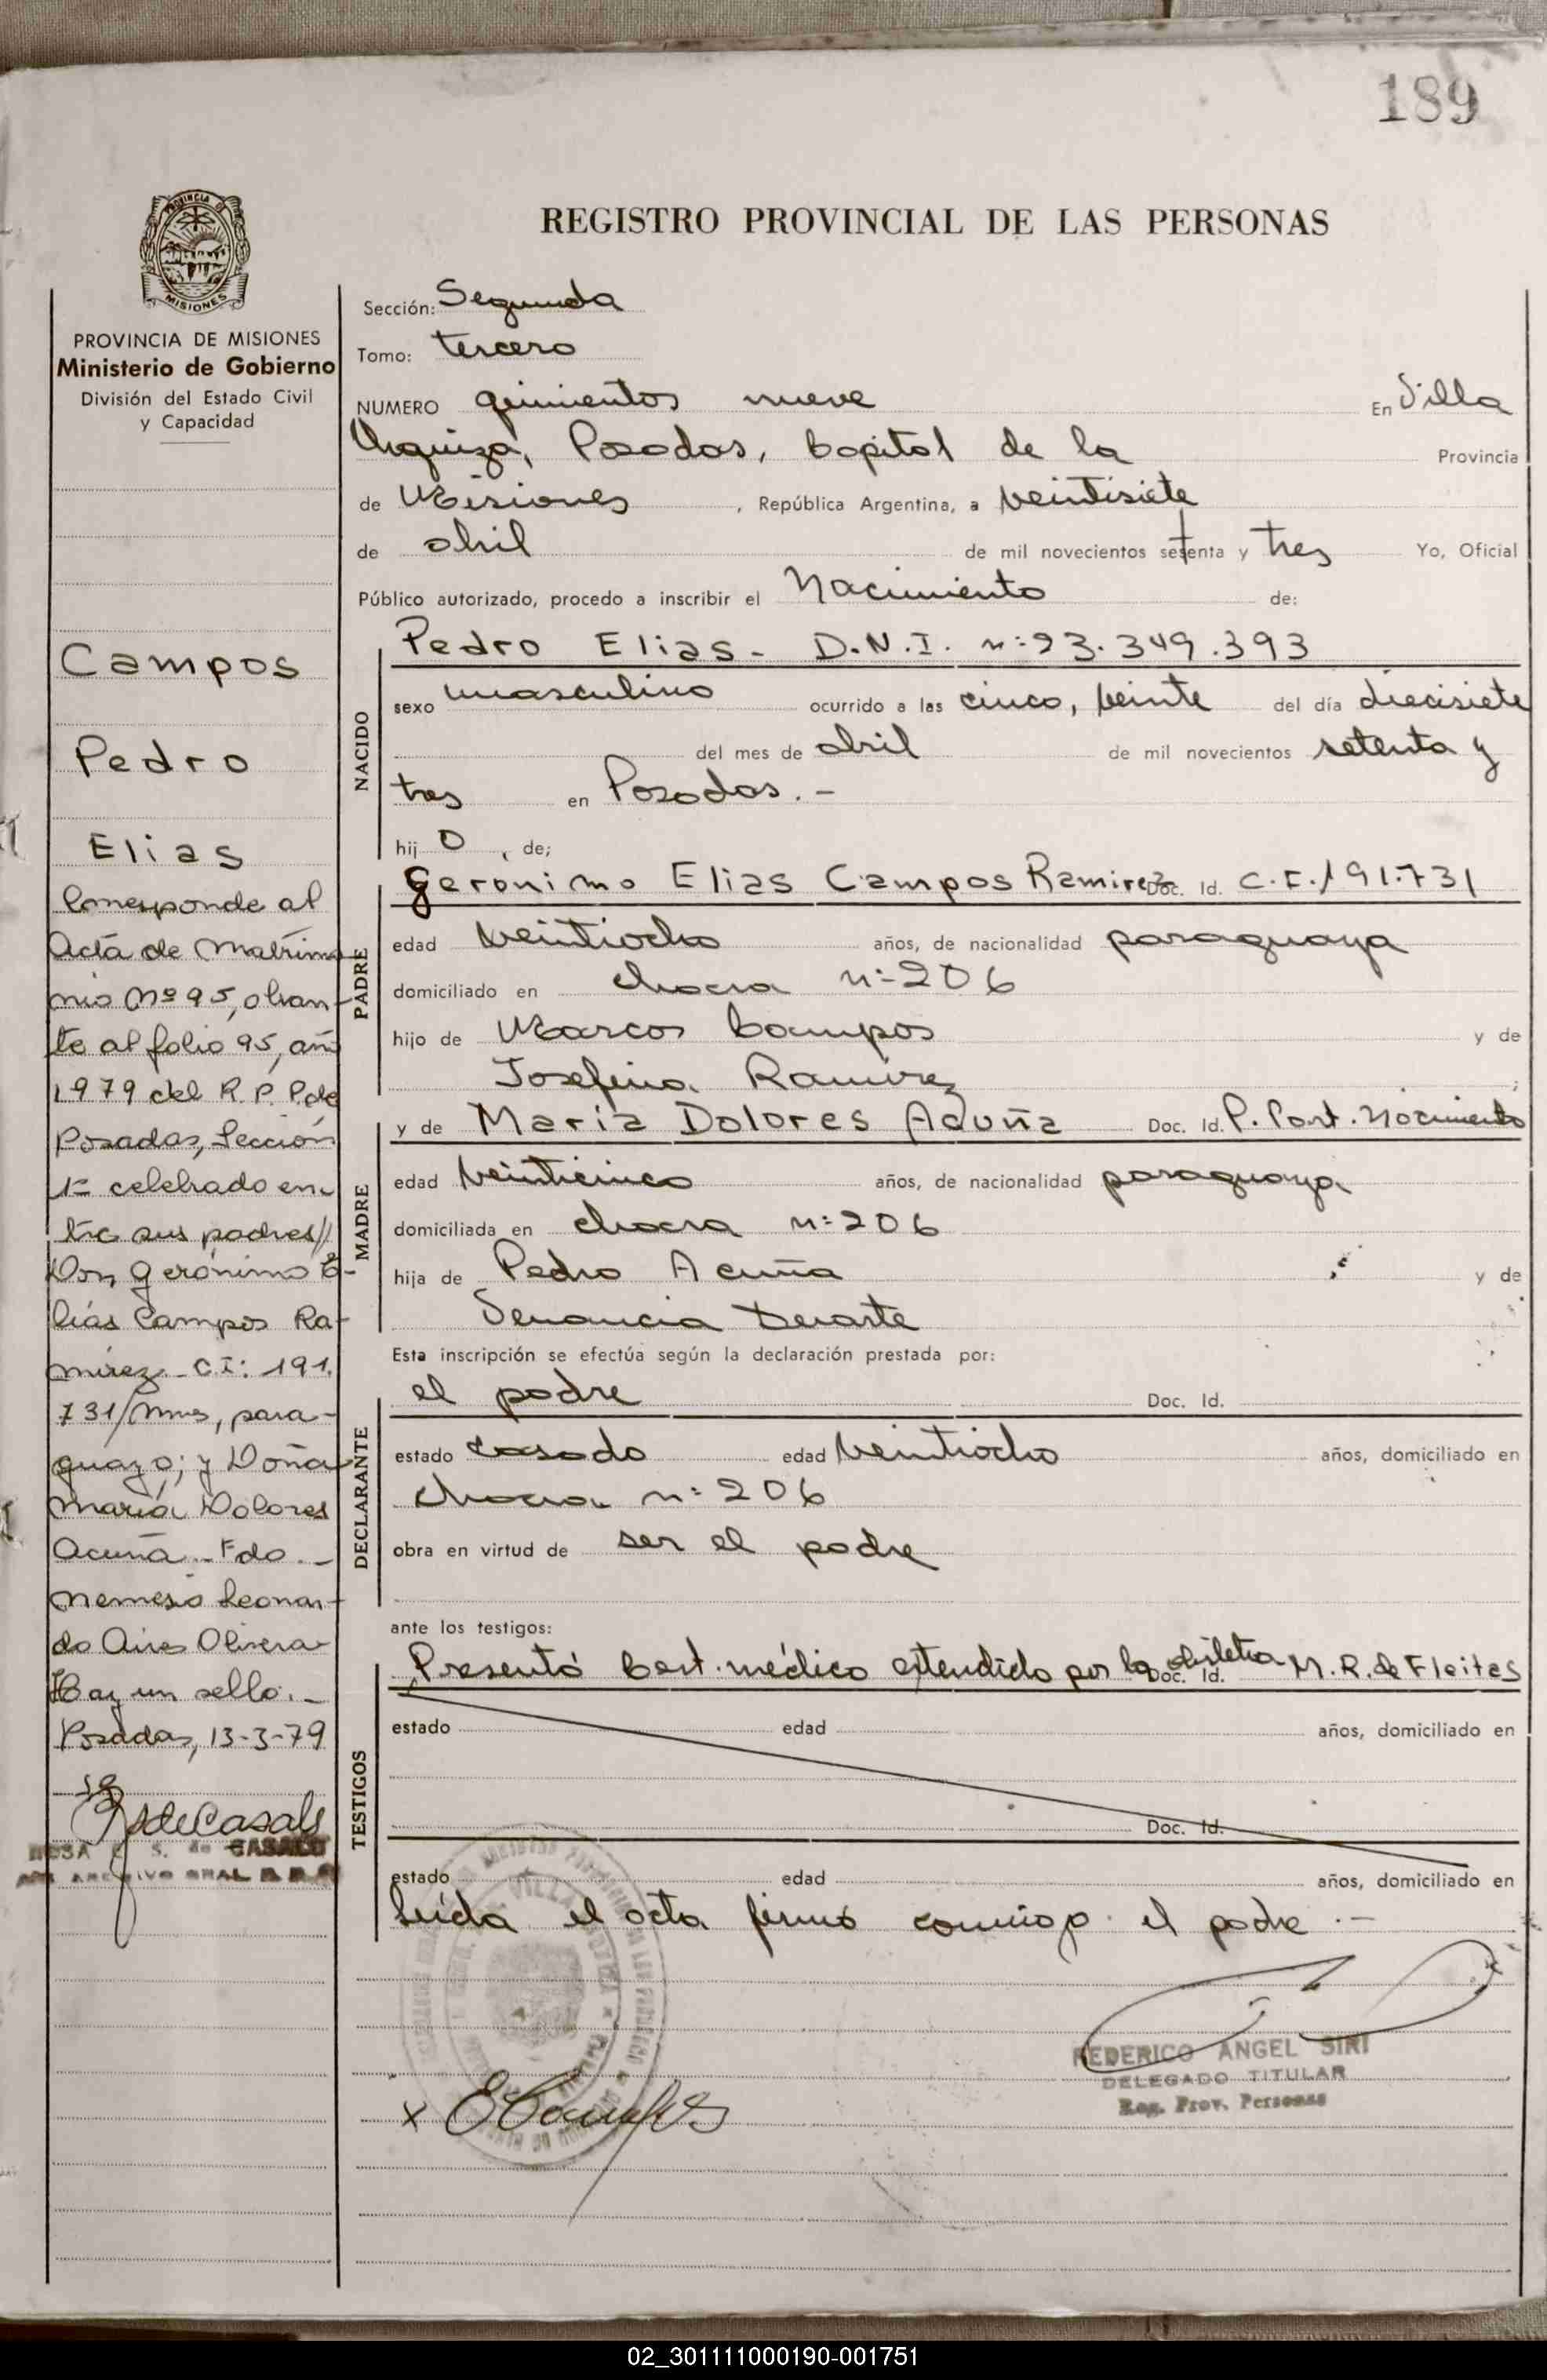 189
REGISTRO PROVINCIAL DE LAS PERSONAS
PROVINCIA DE MISIONES
Ministerio de Gobierno
División del Estado Civil
y Capacidad
Campos
Pedro
Elias
Corresponde al
Acta de Matrimo
nio Nº 95, obran-
te al folio 95, año
1979 del R. P. P. de
Posadas, Sección
1ª celebrado en-
tre sus padres//
Don Gerónimo E-
lías Campos Ra-
mírez - C.I: 191.
731/Mnes, para-
guayo; y Doña
María Dolores
Acuña.- Fdo.-
Nemesio Leonar-
do Aires Olivera
Hay un sello.-
Posadas, 13-3-79
ROSA S. de CASALS
ARCHIVO GRAL R.P.P.
Sección: Segunda
Tomo: tercero
NUMERO quinientos nueve En Villa
Urquiza, Posadas, Capital de la Provincia
de Misiones, República Argentina, a veintisiete
de abril de mil novecientos setenta y tres Yo, Oficial
Público autorizado, procedo a inscribir el Nacimiento de:
NACIDO
Pedro Elias - D.N.I. nº 23.349.393
sexo masculino ocurrido a las cinco, veinte del día diecisiete
del mes de abril de mil novecientos setenta y
tres en Posadas.-
hij o, de;
PADRE
Geronimo Elias Campos Ramirez Doc. Id. C.I. 191.731
edad veintiocho años, de nacionalidad paraguaya
domiciliado en chacra nº 206
hijo de Marcos Campos y de
Josefina Ramirez;
MADRE
y de María Dolores Acuña Doc. Id. P. Part. Nacimiento
edad veinticinco años, de nacionalidad paraguaya
domiciliada en chacra nº 206
hija de Pedro Acuña y de
Venancia Duarte
Esta inscripción se efectúa según la declaración prestada por:
DECLARANTE
el padre Doc. Id.
estado casado edad veintiocho años, domiciliado en
chacra nº 206
obra en virtud de ser el padre
ante los testigos:
TESTIGOS
Presentó Cert. médico extendido por la obstetra Doc. Id. M.R. de Fleitas
estado edad años, domiciliado en
Doc. Id.
estado edad años, domiciliado en
Leída el acta firmó conmigo el padre.-
FEDERICO ANGEL SIRI
DELEGADO TITULAR
Reg. Prov. Personas
x ECampos
02_301111000190-001751